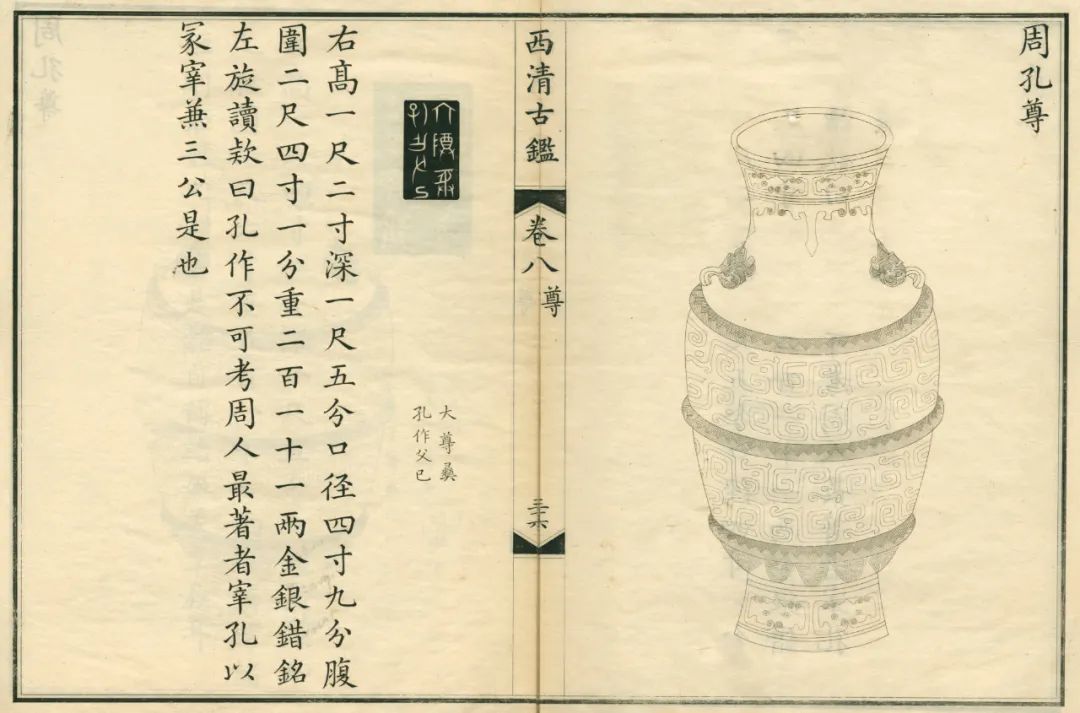 周孔尊
西清古鑑
卷八
尊
三十六
大尊彝
孔作父己
右高一尺二寸深一尺五分口径四寸九分腹
圍二尺四寸一分重二百一十一兩金銀錯銘
左旋讀欵曰孔作不可考周人最著者宰孔以
冡宰兼三公是也